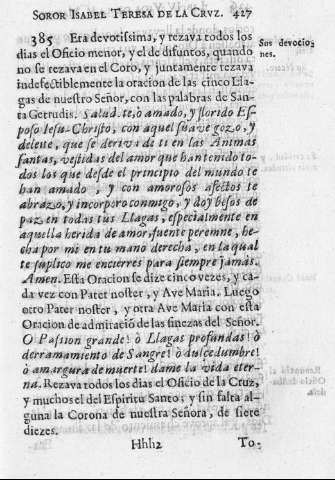 SOROR ISABEL TERESA DE LA CRVZ. 427
385 Era devotissima, y rezava todos los
dias el Oficio menor, y el de difuntos, quando
no se rezava en el Coro, y juntamente rezava
indefectiblemente la oracion de las cinco Lla-
gas de nuestro Señor, con las palabras de San-
ta Getrudis. Salud.te, ò amado, y florido Es-
poso Iesu-Christo, con aquel suave gozo, y
deleite, que se deriva de ti en las Animas
santas, vestidas del amor que han tenido to-
dos los que desde el principio del mundo te
han amado, y con amorosos afectos te
abrazo, y incorporo conmigo, y doy besos de
paz en todas tus Llagas, especialmente en
aquella herida de amor, fuente peremne, he-
cha por mi en tu mano derecha, en la qual
te suplico me encierres para siempre jamàs.
Amen. Esta Oracion se dize cinco vezes, y ca-
da vez con Pater noster, y Ave Maria. Luego
otro Pater noster, y otra Ave Maria con esta
Oracion de admiraciõ de las finezas del Señor.
O Passion grande! ò Llagas profundas! ò
derramamiento de Sangre! ò dulcedumbre!
ò amargura de muerte! dame la vida eter-
na. Rezava todos los dias el Oficio de la Cruz,
y muchos el del Espiritu Santo; y sin falta al-
guna la Corona de nuestra Señora, de siete
diezes.
Hhh2 To-
Sus devocio-
nes.